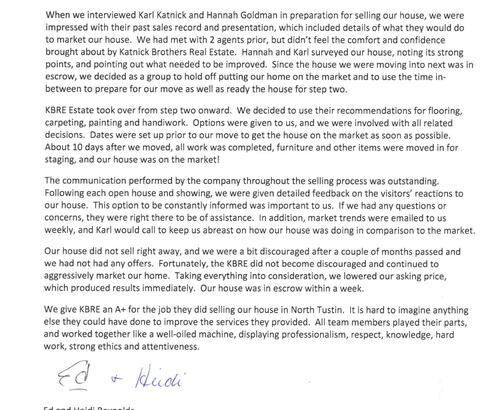 When we interviewed Karl Katnick and Hannah Goldman in preparation for selling our house, we were
impressed with their past sales record and presentation, which included details of what they would do
to market our house. We had met with 2 agents prior, but didn't feel the comfort and confidence
brought about by Katnick Brothers Real Estate. Hannah and Karl surveyed our house, noting its strong
points, and pointing out what needed to be improved. Since the house we were moving into next was in
escrow, we decided as a group to hold off putting our home on the market and to use the time in-
between to prepare for our move as well as ready the house for step two.
KBRE Estate took over from step two onward. We decided to use their recommendations for flooring,
carpeting, painting and handiwork. Options were given to us, and we were involved with all related
decisions. Dates were set up prior to our move to get the house on the market as soon as possible.
About 10 days after we moved, all work was completed, furniture and other items were moved in for
staging, and our house was on the market!
The communication performed by the company throughout the selling process was outstanding.
Following each open house and showing, we were given detailed feedback on the visitors' reactions to
our house. This option to be constantly informed was important to us. If we had any questions or
concerns, they were right there to be of assistance. In addition, market trends were emailed to us
weekly, and Karl would call to keep us abreast on how our house was doing in comparison to the market.
Our house did not sell right away, and we were a bit discouraged after a couple of months passed and
we had not had any offers. Fortunately, the KBRE did not become discouraged and continued to
aggressively market our home. Taking everything into consideration, we lowered our asking price,
which produced results immediately. Our house was in escrow within a week.
We give KBRE an A+ for the job they did selling our house in North Tustin. It is hard to imagine anything
else they could have done to improve the services they provided. All team members played their parts,
and worked together like a well-oiled machine, displaying professionalism, respect, knowledge, hard
work, strong ethics and attentiveness.
Ed + Heidi
Ed and Heidi Reynolds